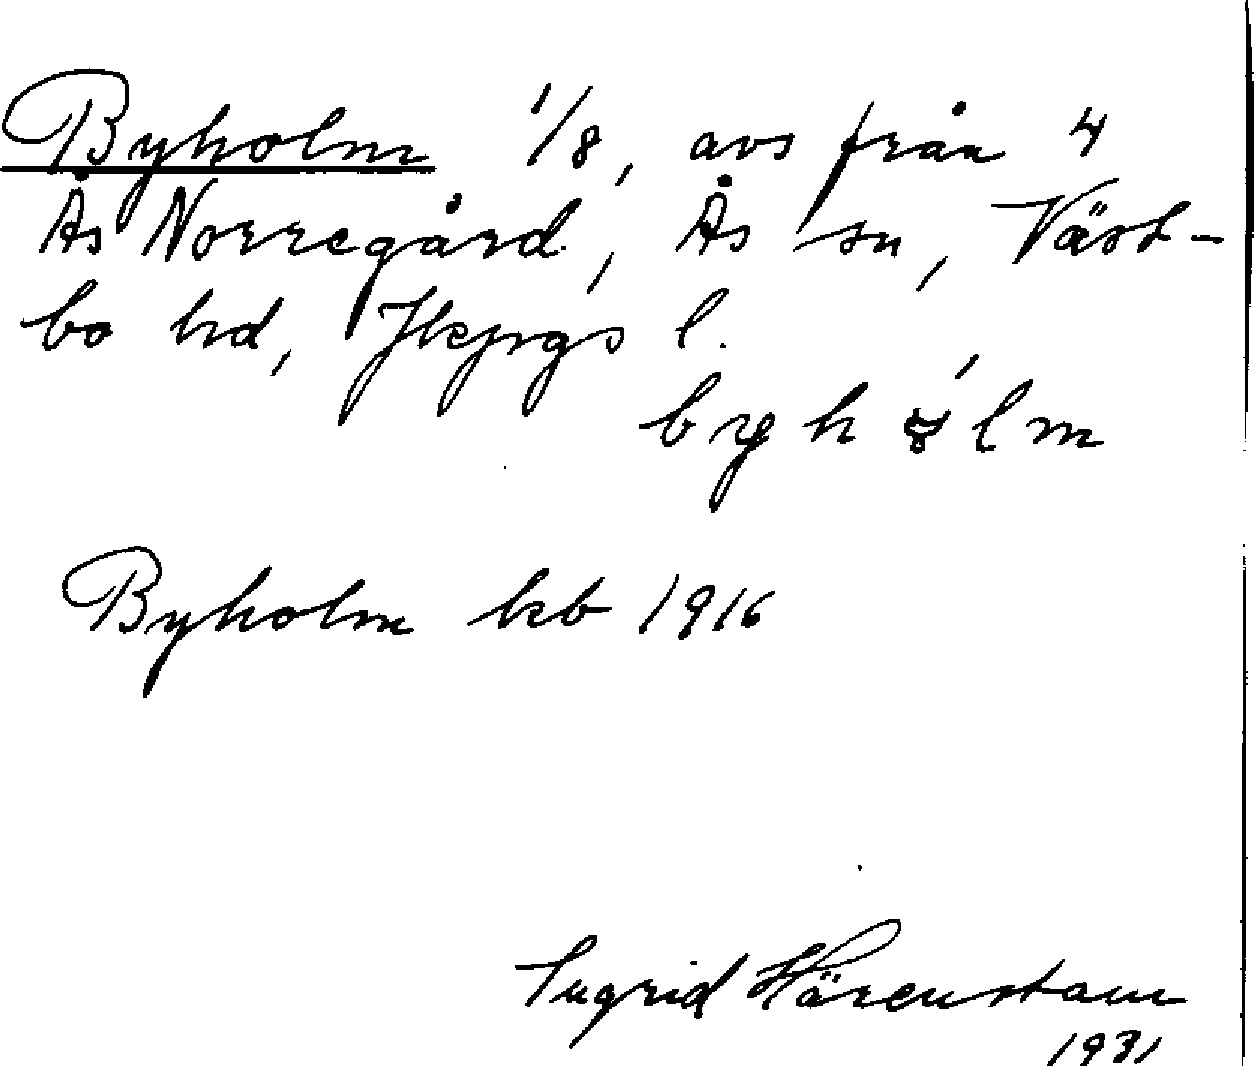 Byholm 1/8, avs från 4
Ås Norregård, Ås sn, Väst-
bo hd, Jkpgs l.
Byholm kb 1916
Ingrid Härenstam
1931